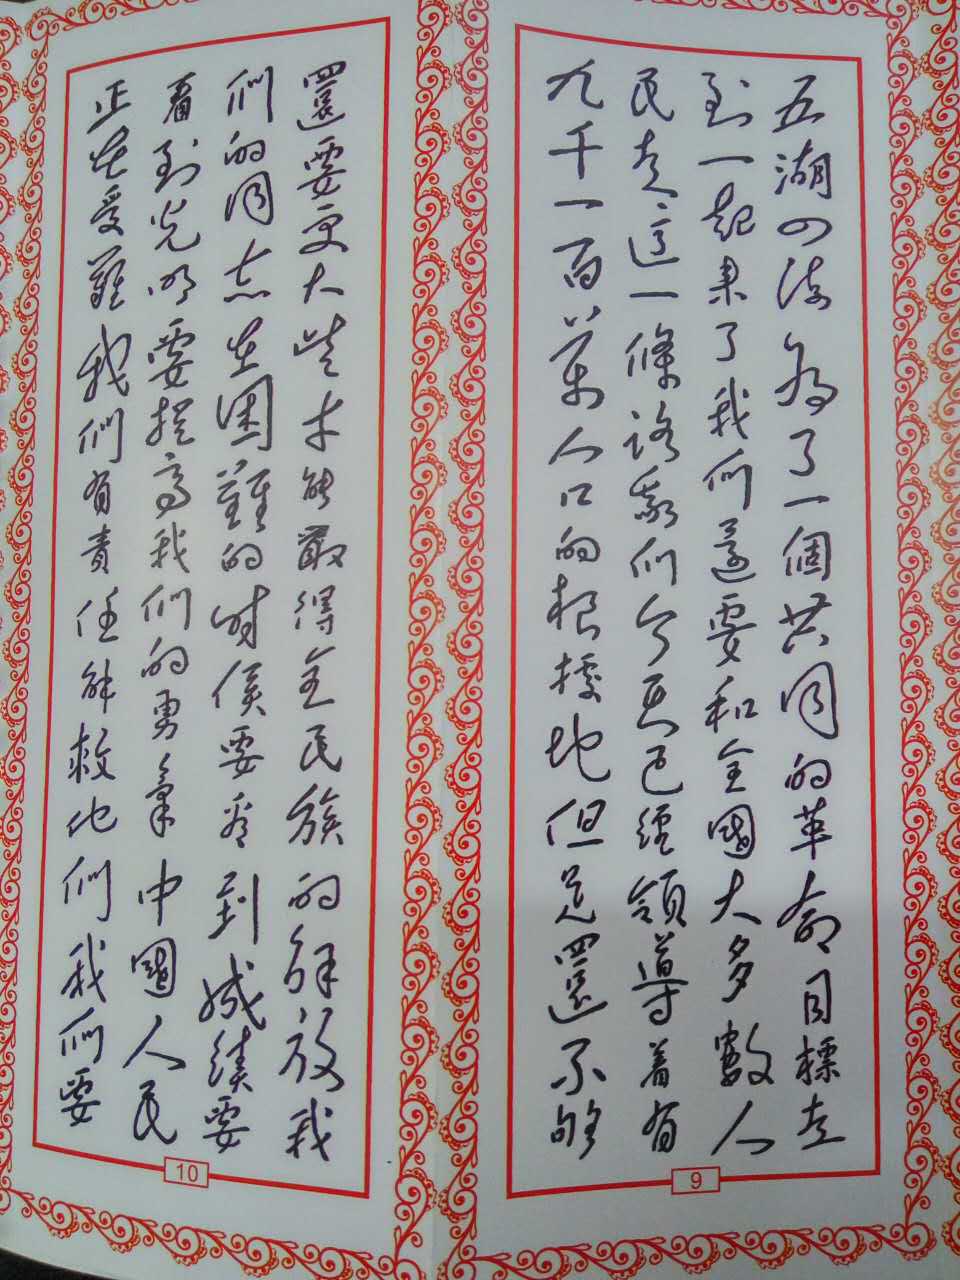 五湖四海為了一個共同的革命目標走
到一起來了我們還要和全國大多數人
民走這一條路我們今天已經領導着有
九千一百萬人口的根據地但是還不够
9
還要更大些才能取得全民族的解放我
們的同志在困難的時候要看到成績要
看到光明要提高我們的勇氣中國人民
正在受難我們有責任解救他們我們要
10